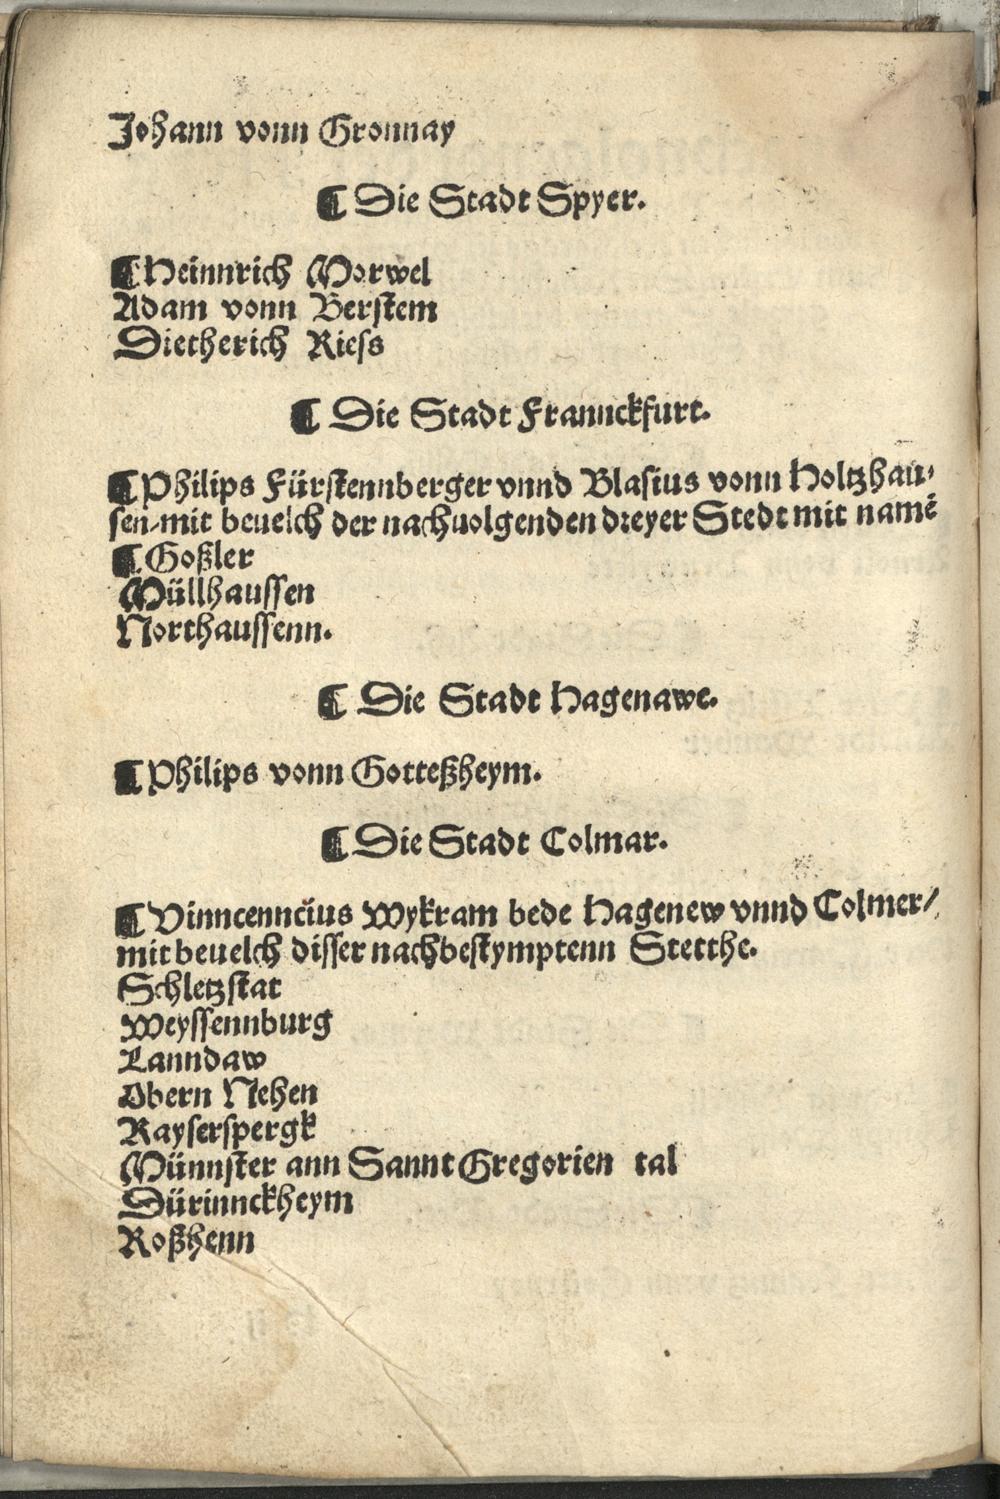 Johann vonn Gronnay
¶ Die Stadt Spyer.
¶ Heinnrich Morwel
Adam vonn Berstem
Dietherich Riess
¶ Die Stadt Frannckfurt.
¶ Philips Fürstennberger vnnd Blasius vonn Holtzhau⸗
sen/mit beuelch der nachuolgenden dreyer Stedt mit namē
¶ Goßler
Müllhaussen
Northaussenn.
¶ Die Stadt Hagenawe.
¶ Philips vonn Gotteßheym.
¶ Die Stadt Colmar.
¶ Vinncenncius Wykram bede Hagenew vnnd Colmer/
mit beuelch disser nachbestymptenn Stetthe.
Schletzstat
Weyssennburg
Lanndaw
Obern Nehen
Kayserspergk
Münnster ann Sannt Gregorien tal
Dürinnckheym
Roßhenn